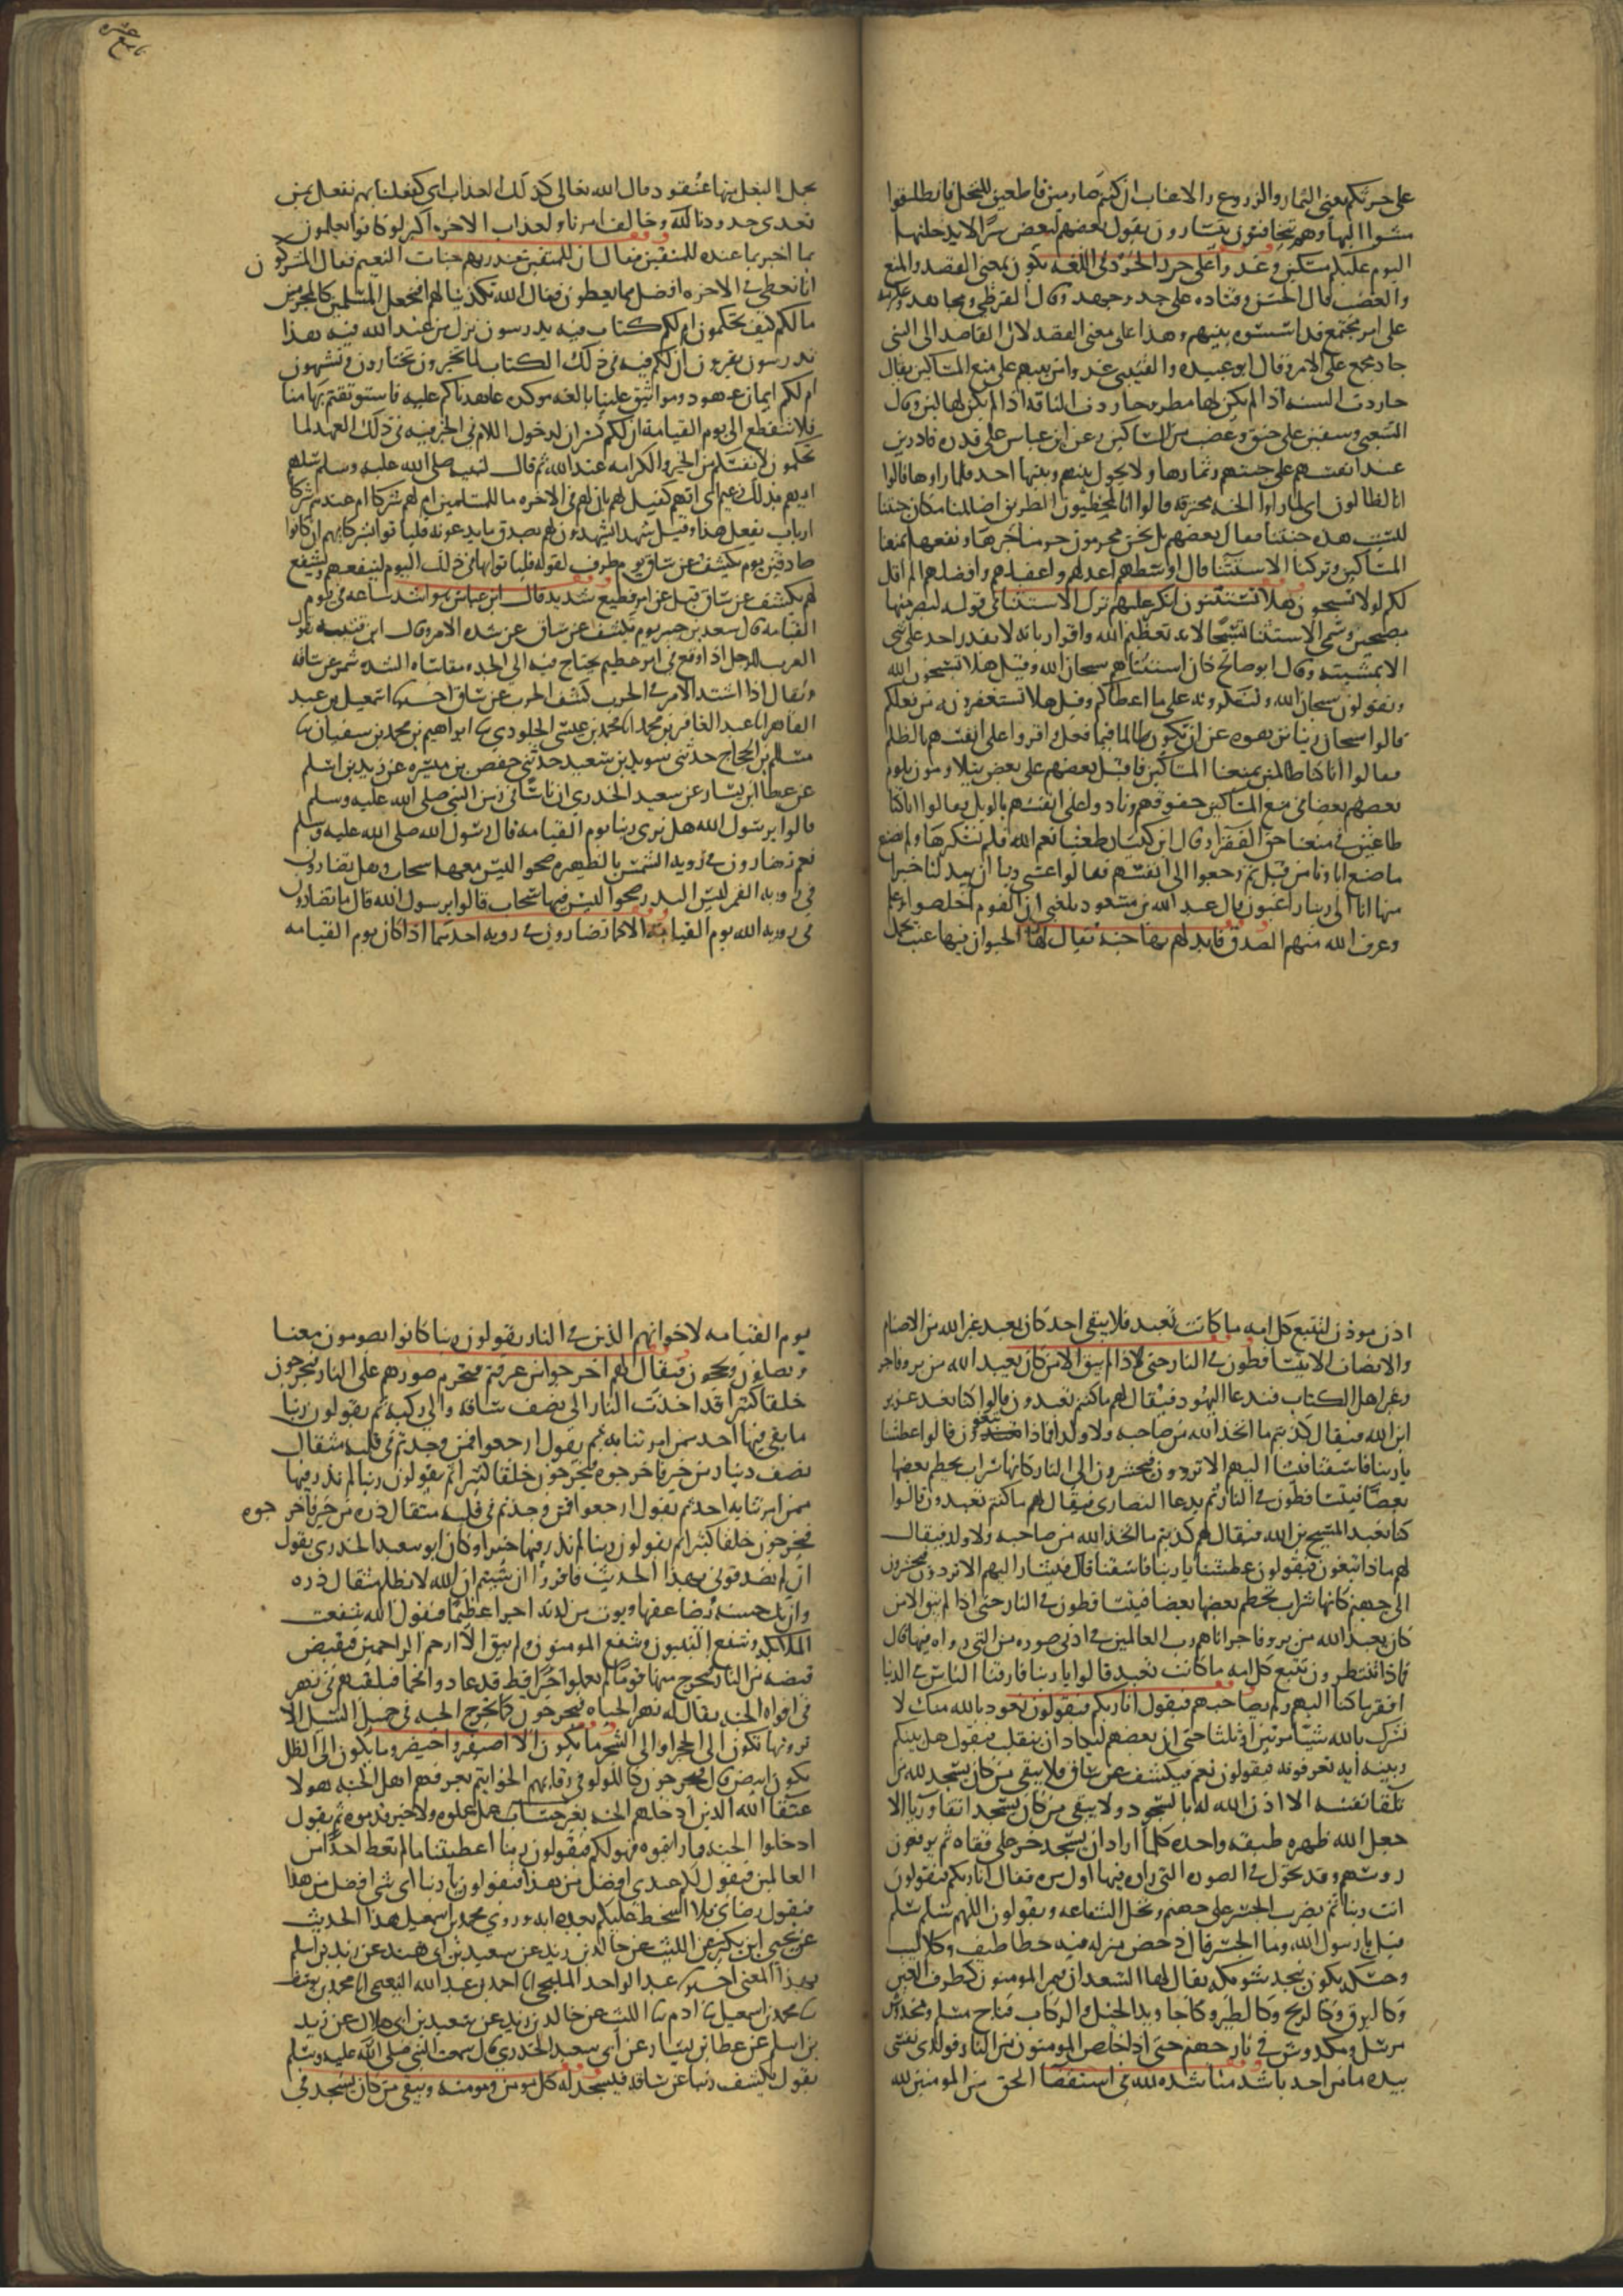 على حرثكم يعني الثمار والزروع والاعناب ان كنتم صارمين قاطعين للنخل فانطلقوا
مشوا اليها وهم يتخافتون يتسارون يقول بعضهم لبعض سرا ان لا يدخلنها
اليوم عليكم مسكين وغدوا على حرد الحرد في اللغه يكون بمعنى القصد والمنع
والغضب قال الحسن وقتاده على جد وجهد وقال القرظي ومجاهد وعكرمه
على امر مجتمع قد اسسوه بينهم وهذا على معنى القصد لان القاصد الى الشي
جاد مجمع على الامر وقال ابو عبيده والقتيبي غدوا من بيتهم على منع المساكين يقال
حاردت السنه اذا لم يكن لها مطر وحاردت الناقه اذا لم يكن لها لبن وقال
الشعبي وسفين على حنق وغضب من المساكين وعن ابن عباس على قدره قادرين
عند انفسهم على جنتهم وثمارها ولا يحول بينهم وبينها احد فلما راوها قالوا
انا لضالون اي لما راوا الجنه محترقه قالوا انا لمخطيون الطريق اضللنا مكان جنتنا
ليست هذه جنتنا فقال بعضهم بل نحن محرومون حرمنا خيرها ونفعها لمنعنا
المساكين وتركنا الاستثنا قال اوسطهم اعدلهم واعقلهم وافضلهم الم اقل
لكم لولا تسبحون هلا تستثنون انكر عليهم ترك الاستثنا في قوله ليصرمنها
مصبحين وسمى الاستثنا تسبيحا لانه تعظيم الله واقرار بانه لا يقدر احد على شي
الا بمشيته وقال ابو صالح كان استثناهم سبحان الله وقيل هلا تسبحون الله
وتقولون سبحان الله وتشكرونه على ما اعطاكم وقيل هلا تستغفرونه من فعلكم
قالوا سبحان ربنا نزهوه عن ان يكون ظالما فيما فعل واقروا على انفسهم بالظلم
فقالوا انا كنا ظالمين بمنعنا المساكين فاقبل بعضهم على بعض يتلاومون يلوم
بعضهم بعضا في منع المساكين حقوقهم ونادوا على انفسهم بالويل فقالوا انا كنا
طاغين في منعنا حق الفقرا وقال ابن كيسان طغينا نعم الله فلم نشكرها ولم نصنع
ما صنع اباونا من قبل ثم رجعوا الى انفسهم فقالوا عسى ربنا ان يبدلنا خيرا
منها انا الى ربنا راغبون قال عبد الله بن مسعود بلغني ان القوم اخلصوا
وعرف الله منهم الصدق فابدلهم بها جنه يقال لها الحيوان فيها عنب يحمل
يحمل البغل منها عنقودا قال الله تعالى كذلك العذاب اي كفعلنا بهم نفعل بمن
تعدى حدودنا وخالف امرنا ولعذاب الاخره اكبر لو كانوا يعلمون
بما اخبر بما عنده للمتقين فقال ان للمتقين عند ربهم جنات النعيم فقال المشركون
انا نعطى في الاخره افضل مما يعطون فقال الله تكذيبا لهم افنجعل المسلمين كالمجرمين
ما لكم كيف تحكمون ام لكم كتاب فيه يدرسون نزل من عند الله فيه هذا
تدرسون تقرون ان لكم فيه في ذلك الكتاب لما تخيرون تختارون وتشتهون
ام لكم ايمان عهود ومواثيق علينا بالغه موكده عاهدناكم عليه فاستوثقتم بها منا
فلا تنقطع الى يوم القيامه ان لكم كسر ان لدخول اللام في الخبر فيه ذلك العهد لما
تحكمون لانفسكم من الخير والكرامه عند الله ثم قال لنبيه صلى الله عليه وسلم سلهم
ايهم بذلك زعيم اي ايهم كفيل لهم بان لهم في الاخره ما للمسلمين ام لهم شركا ام عندهم شركا
ارباب تفعل هذا وقيل شهدا يشهدون لهم بصدق ما يدعونه فلياتوا بشركايهم ان كانوا
صادقين يوم يكشف عن ساق يوم ظرف لقوله فلياتوا بها في ذلك اليوم لتنفعهم وتشفع
لهم يكشف عن ساق قيل عن امر فظيع شديد قال ابن عباس هو اشد ساعه في يوم
القيامه قال سعيد بن جبير يوم يكشف عن ساق عن شده الامر وقال ابن قتيبه تقول
العرب للرجل اذا وقع في امر عظيم يحتاج فيه الى الجد ومقاساه الشده شمر عن ساقه
ويقال اذا اشتد الامر في الحرب كشف الحرب عن ساق اخبرنا اسمعيل بن عبد
القاهر انا عبد الغافر بن محمد انا محمد بن عيسى الجلودي نا ابراهيم بن محمد بن سفيان نا
مسلم بن الحجاج حدثني سويد بن سعيد حدثني حفص بن ميسره عن زيد بن اسلم
عن عطا ابن يسار عن سعيد الخدري ان ناسا في زمن النبي صلى الله عليه وسلم
قالوا يرسول الله هل نرى ربنا يوم القيامه قال رسول الله صلى الله عليه وسلم
نعم تضارون في رويه الشمس بالظهيره صحوا ليس معها سحاب وهل تضارون
في رويه القمر ليله البدر صحوا ليس فيها سحاب قالوا يرسول الله قال ما تضارون
في رويه الله يوم القيامه الا كما تضارون في رويه احدهما اذا كان يوم القيامه
اذن موذن لتتبع كل امه ما كانت تعبد فلا يبقى احد كان يعبد غير الله من الاصنام
والانصاب الا يتساقطون في النار حتى اذا لم يبق الا من كان يعبد الله من بر وفاجر
وغير اهل الكتاب فتدعا اليهود فيقال لهم ما كنتم تعبدون قالوا كنا نعبد عزير
ابن الله فيقال كذبتم ما اتخذ الله من صاحبه ولا ولد فماذا تبغون قالوا عطشنا
يا ربنا فاسقنا فيشار اليهم الا تردون فيحشرون الى النار كانها سراب يحطم بعضها
بعضا فيتساقطون في النار ثم يدعا النصارى فيقال لهم ما كنتم تعبدون قالوا
كنا نعبد المسيح بن الله فيقال لهم كذبتم ما اتخذ الله من صاحبه ولا ولد فيقال
لهم ماذا تبغون فيقولون عطشنا يا ربنا فاسقنا قال فيشار اليهم الا تردون فيحشرون
الى جهنم كانها سراب يحطم بعضها بعضا فيتساقطون في النار حتى اذا لم يبق الا من
كان يعبد الله من بر وفاجر اتاهم رب العالمين في ادنى صوره من التي راوه فيها قال
فماذا تنتظرون تتبع كل امه ما كانت تعبد قالوا يا ربنا فارقنا الناس في الدنيا
افقر ما كنا اليهم ولم نصاحبهم فيقول انا ربكم فيقولون نعوذ بالله منك لا
نشرك بالله شيئا مرتين او ثلثا حتى ان بعضهم ليكاد ان ينقلب فيقول هل بينكم
وبينه ايه تعرفونه فيقولون نعم فيكشف عن ساق فلا يبقى من كان يسجد لله من
تلقا نفسه الا اذن الله له بالسجود ولا يبقى من كان يسجد اتقا وريا الا
جعل الله ظهره طبقه واحده كلما اراد ان يسجد خر على قفاه ثم يرفعون
روسهم وقد تحول في الصوره التي راوه فيها اول مره فقال انا ربكم فيقولون
انت ربنا ثم يضرب الجسر على جهنم وتحل الشفاعه ويقولون اللهم سلم سلم
قيل يا رسول الله وما الجسر قال دحض مزله فيه خطاطيف وكلاليب
وحسك يكون بنجد شويكه يقال لها السعدان فيمر المومنون كطرف العين
وكالبرق وكالريح وكالطير وكاجاويد الخيل والركاب فناج مسلم ومخدوش
مرسل ومكدوس في نار جهنم حتى اذا خلص المومنون من النار فوالذي نفسي
بيده ما من احد باشد مناشده لله في استقصا الحق من المومنين لله
يوم القيامه لاخوانهم الذين في النار يقولون ربنا كانوا يصومون معنا
ويصلون ويحجون فيقال لهم اخرجوا من عرفتم فتحرم صورهم على النار فيخرجون
خلقا كثيرا قد اخذت النار الى نصف ساقه والى ركبه ثم يقولون ربنا
ما بقي فيها احد ممن امرتنا به ثم يقول ارجعوا فمن وجدتم في قلبه مثقال
نصف دينار من خير فاخرجوه فيخرجون خلقا كثيرا ثم يقولون ربنا لم نذر فيها
ممن امرتنا به احد ثم يقول ارجعوا فمن وجدتم في قلبه مثقال ذره من خير فاخرجوه
فيخرجون خلقا كثيرا ثم يقولون ربنا لم نذر فيها خيرا وكان ابو سعيد الخدري يقول
ان لم تصدقوني بهذا الحديث فاقروا ان شيتم ان الله لا يظلم مثقال ذره
وان تك حسنه يضاعفها ويوت من لدنه اجرا عظيما فيقول الله شفعت
الملايكه وشفع النبيون وشفع المومنون ولم يبق الا ارحم الراحمين فيقبض
قبضه من النار فيخرج منها قوما لم يعملوا خيرا قط قد عادوا حمما فيلقيهم في نهر
في افواه الجنه يقال له نهر الحياه فيخرجون كما تخرج الحبه في حميل السيل الا
ترونها تكون الى الحجر او الى الشجر ما يكون الا اصيفر واخيضر وما يكون الى الظل
يكون ابيض قال فيخرجون كاللولو في رقابهم الخواتم يعرفهم اهل الجنه هولا
عتقا الله الذين ادخلهم الجنه بغير حساب عمل عملوه ولا خير قدموه ثم يقول
ادخلوا الجنه فما رايتموه فهو لكم فيقولون ربنا اعطيتنا ما لم تعط احدا من
العالمين فيقول لكم عندي افضل من هذا فيقولون يا ربنا اي شي افضل من هذا
فيقول رضاي فلا اسخط عليكم بعده ابدا وروى محمد بن اسمعيل هذا الحديث
عن يحيى ابن بكير عن الليث عن خالد بن يزيد عن سعيد بن ابي هند عن زيد بن اسلم
بهذا المعنى اخبرنا عبد الواحد المليحي انا احمد بن عبد الله النعيمي انا محمد بن يوسف
نا محمد بن اسمعيل نا ادم نا الليث عن خالد بن يزيد عن سعيد بن ابي هلال عن زيد
بن اسلم عن عطا بن يسار عن ابي سعيد الخدري قال سمعت النبي صلى الله عليه وسلم
يقول يكشف ربنا عن ساقه فيسجد له كل مومن ومومنه ويبقى من كان يسجد في